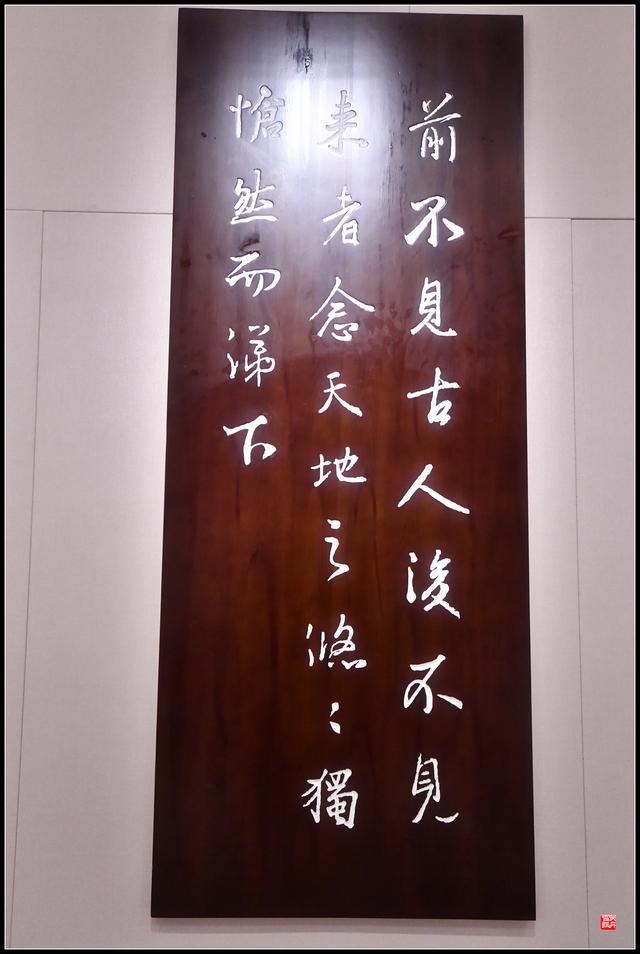 前不見古人後不見
来者念天地之悠々獨
愴然而涕下